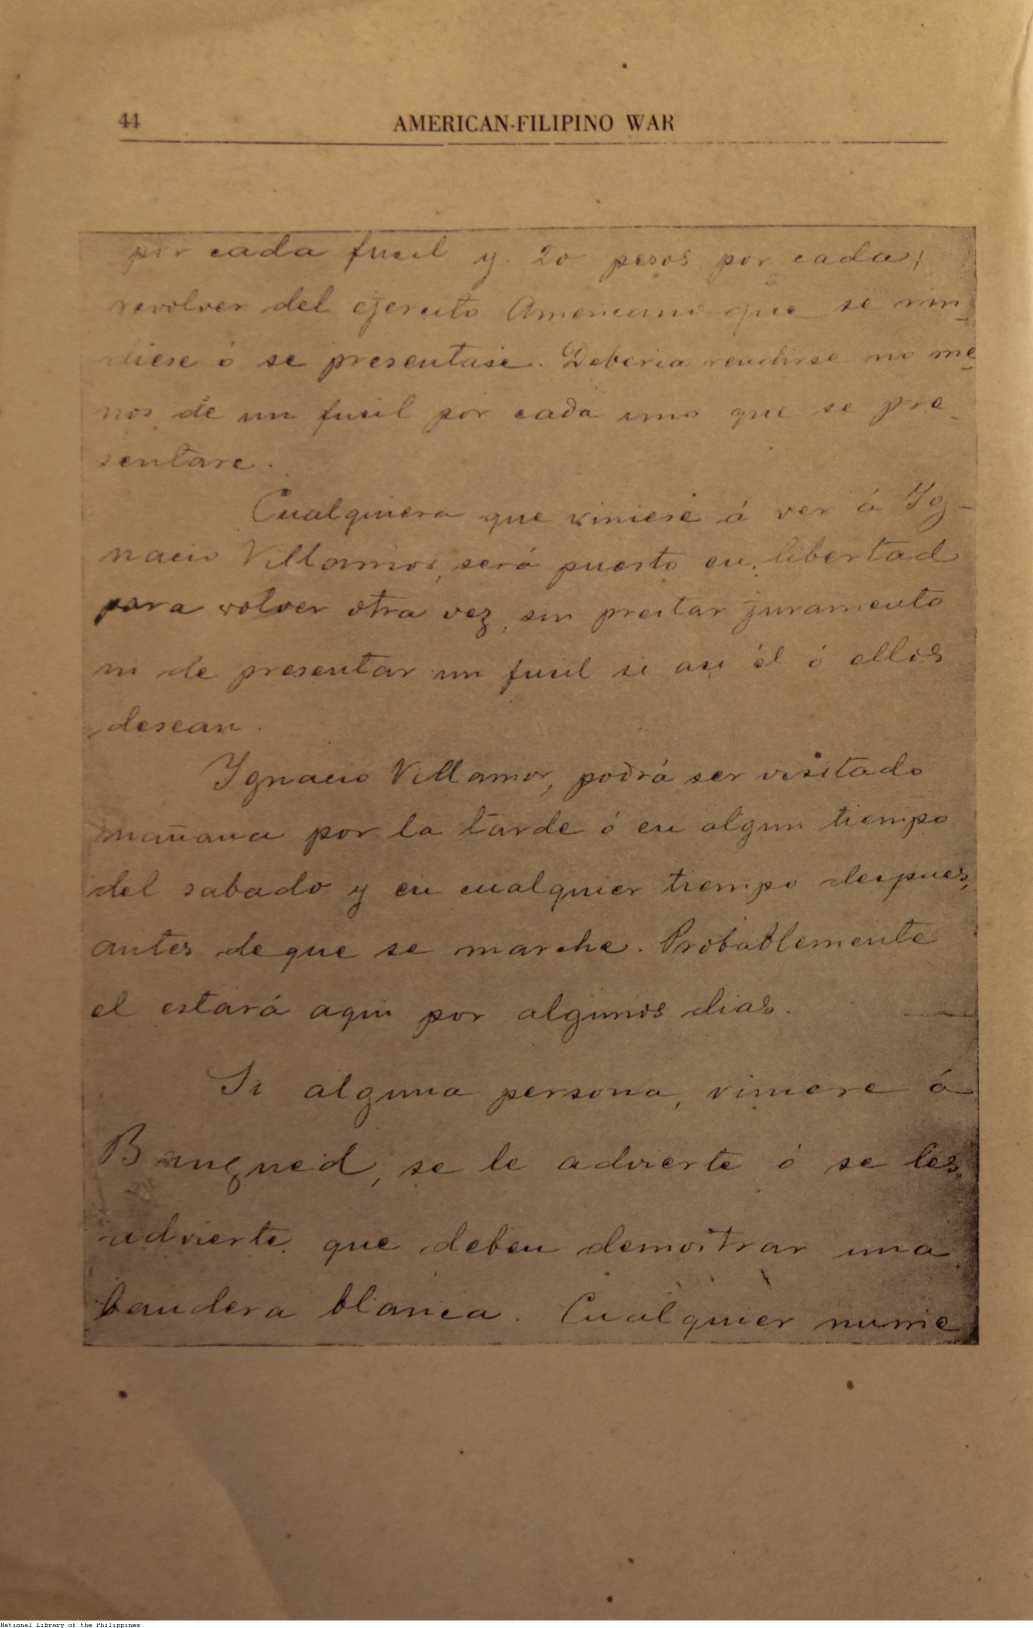 44
AMERICAN-FILIPINO WAR
por cada fusil y 20 pesos por cada
revolver del ejercito Americano que se rin-
diese ó se presentase. Deberia rendirse no me-
nos de un fusil por cada uno que se pre-
sentare.
Cualquiera que viniese á ver á Ig-
nacio Villamor, será puesto en libertad
para volver otra vez, sin prestar juramento
ni de presentar un fusil si asi él ó ellos
desean.
Ignacio Villamor, podrá ser visitado
mañana por la tarde ó en algun tiempo
del sabado y en cualquier tiempo despues,
antes de que se marche. Probablemente
el estará aqui por algunos dias.
Si alguna persona, viniere á
Bangued, se le advierte ó se les
advierte que deben demostrar una
bandera blanca. Cualquier nume
National Library of the Philippines